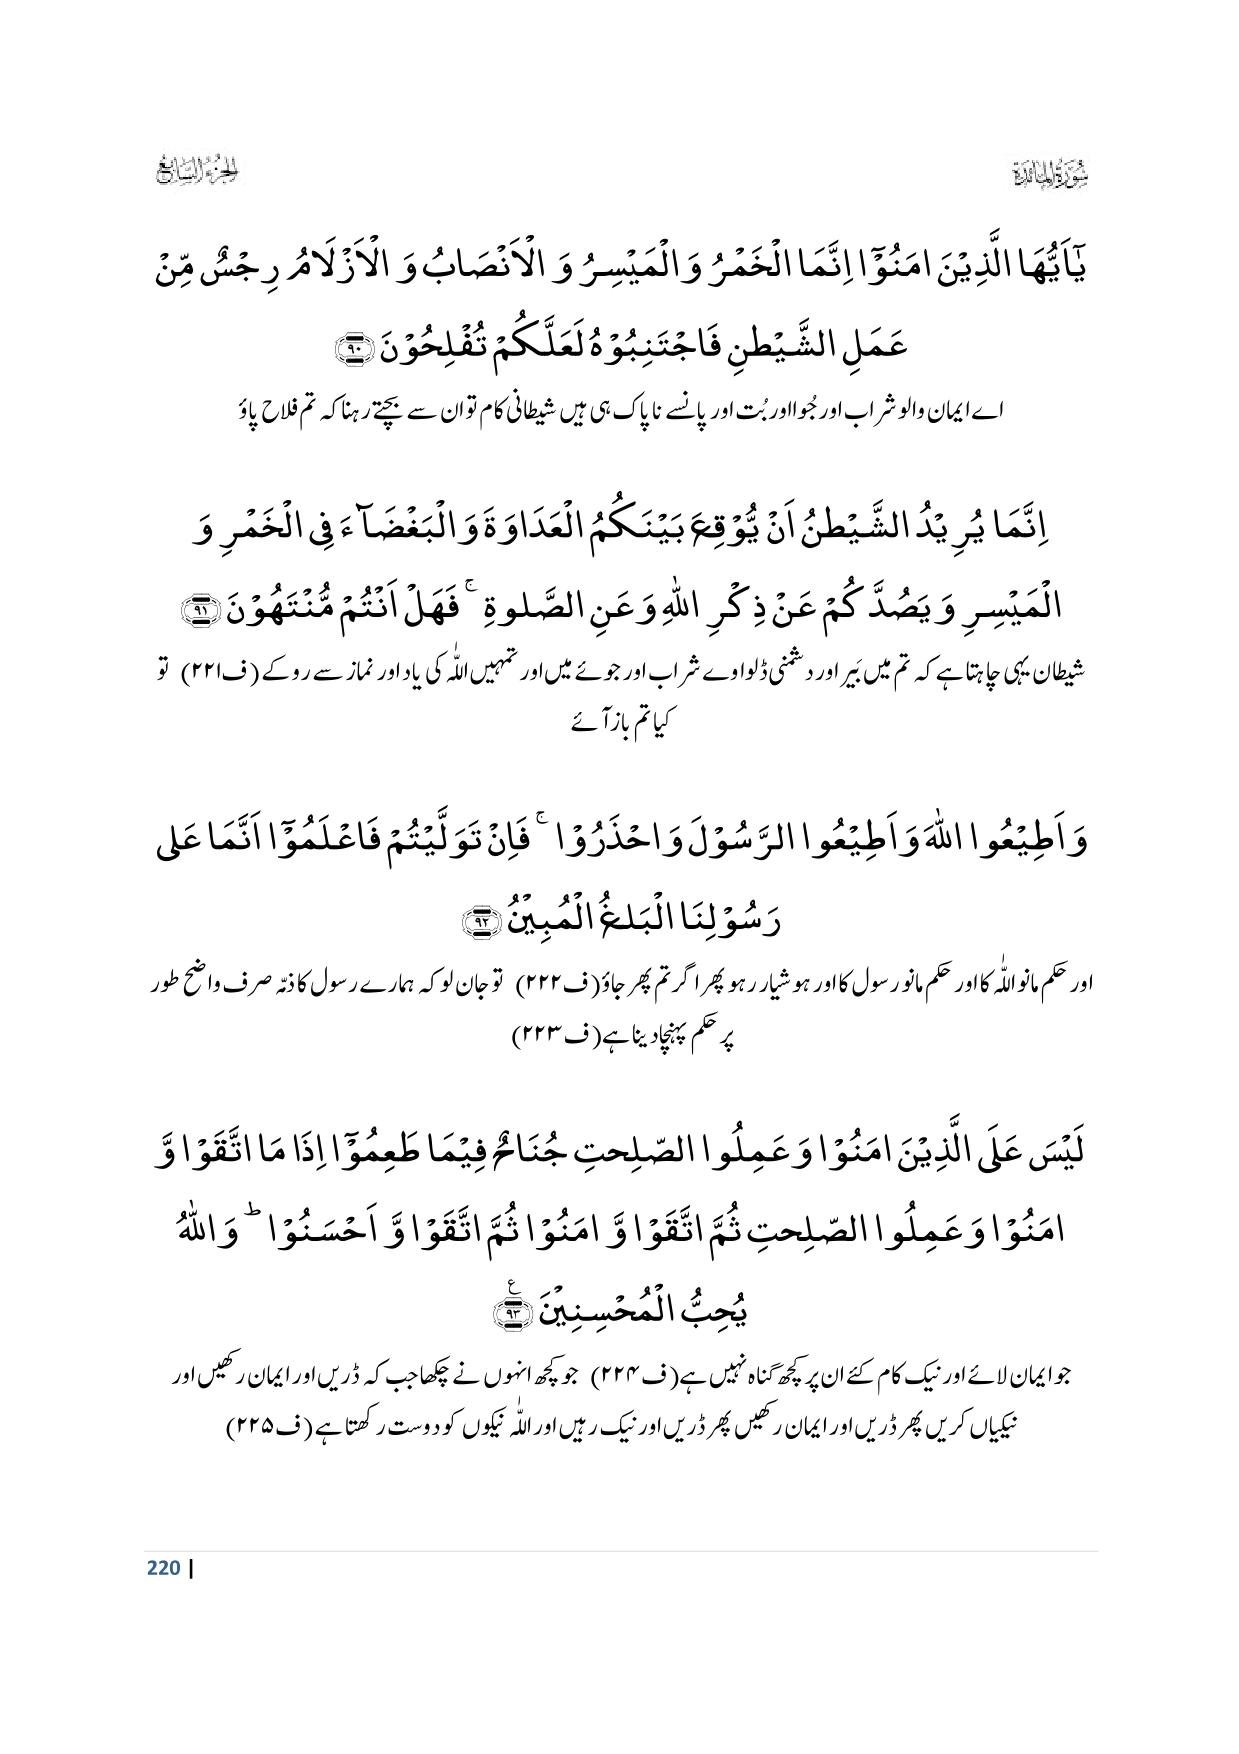 سُوْرَةُ الْمَائِدَة
الجزء السابع
يٰۤاَيُّهَا الَّذِيْنَ اٰمَنُوْۤا اِنَّمَا الْخَمْرُ وَالْمَيْسِرُ وَ الْاَنْصَابُ وَ الْاَزْلَامُ رِجْسٌ مِّنْ
عَمَلِ الشَّيْطٰنِ فَاجْتَنِبُوْهُ لَعَلَّكُمْ تُفْلِحُوْنَ ﴿۹۰﴾
اے ایمان والو شراب اور جُوا اور بُت اور پانسے ناپاک ہی ہیں شیطانی کام تو ان سے بچتے رہنا کہ تم فلاح پاؤ
اِنَّمَا يُرِيْدُ الشَّيْطٰنُ اَنْ يُّوْقِعَ بَيْنَكُمُ الْعَدَاوَةَ وَالْبَغْضَآءَ فِى الْخَمْرِ وَ
الْمَيْسِرِ وَ يَصُدَّكُمْ عَنْ ذِكْرِ اللّٰهِ وَعَنِ الصَّلٰوةِ ۚ فَهَلْ اَنْتُمْ مُّنْتَهُوْنَ ﴿۹۱﴾
شیطان یہی چاہتا ہے کہ تم میں بَیر اور دشمنی ڈلوا وے شراب اور جوئے میں اور تمہیں اللّٰہ کی یاد اور نماز سے روکے (ف۲۲۱) تو
کیا تم باز آئے
وَ اَطِيْعُوا اللّٰهَ وَ اَطِيْعُوا الرَّسُوْلَ وَ احْذَرُوْا ۚ فَاِنْ تَوَلَّيْتُمْ فَاعْلَمُوْۤا اَنَّمَا عَلٰى
رَسُوْلِنَا الْبَلٰغُ الْمُبِيْنُ ﴿۹۲﴾
اور حکم مانو اللّٰہ کا اور حکم مانو رسول کا اور ہوشیار رہو پھر اگر تم پھر جاؤ (ف۲۲۲) تو جان لو کہ ہمارے رسول کا ذمّہ صرف واضح طور
پر حکم پہنچا دینا ہے (ف۲۲۳)
لَيْسَ عَلَى الَّذِيْنَ اٰمَنُوْا وَ عَمِلُوا الصّٰلِحٰتِ جُنَاحٌ فِيْمَا طَعِمُوْۤا اِذَا مَا اتَّقَوْا وَّ
اٰمَنُوْا وَ عَمِلُوا الصّٰلِحٰتِ ثُمَّ اتَّقَوْا وَّ اٰمَنُوْا ثُمَّ اتَّقَوْا وَّ اَحْسَنُوْا ؕ وَ اللّٰهُ
يُحِبُّ الْمُحْسِنِيْنَ ﴿۹۳﴾ ع
جو ایمان لائے اور نیک کام کئے ان پر کچھ گناہ نہیں ہے (ف۲۲۴) جو کچھ انہوں نے چکھا جب کہ ڈریں اور ایمان رکھیں اور
نیکیاں کریں پھر ڈریں اور ایمان رکھیں پھر ڈریں اور نیک رہیں اور اللّٰہ نیکوں کو دوست رکھتا ہے (ف۲۲۵)
220 |